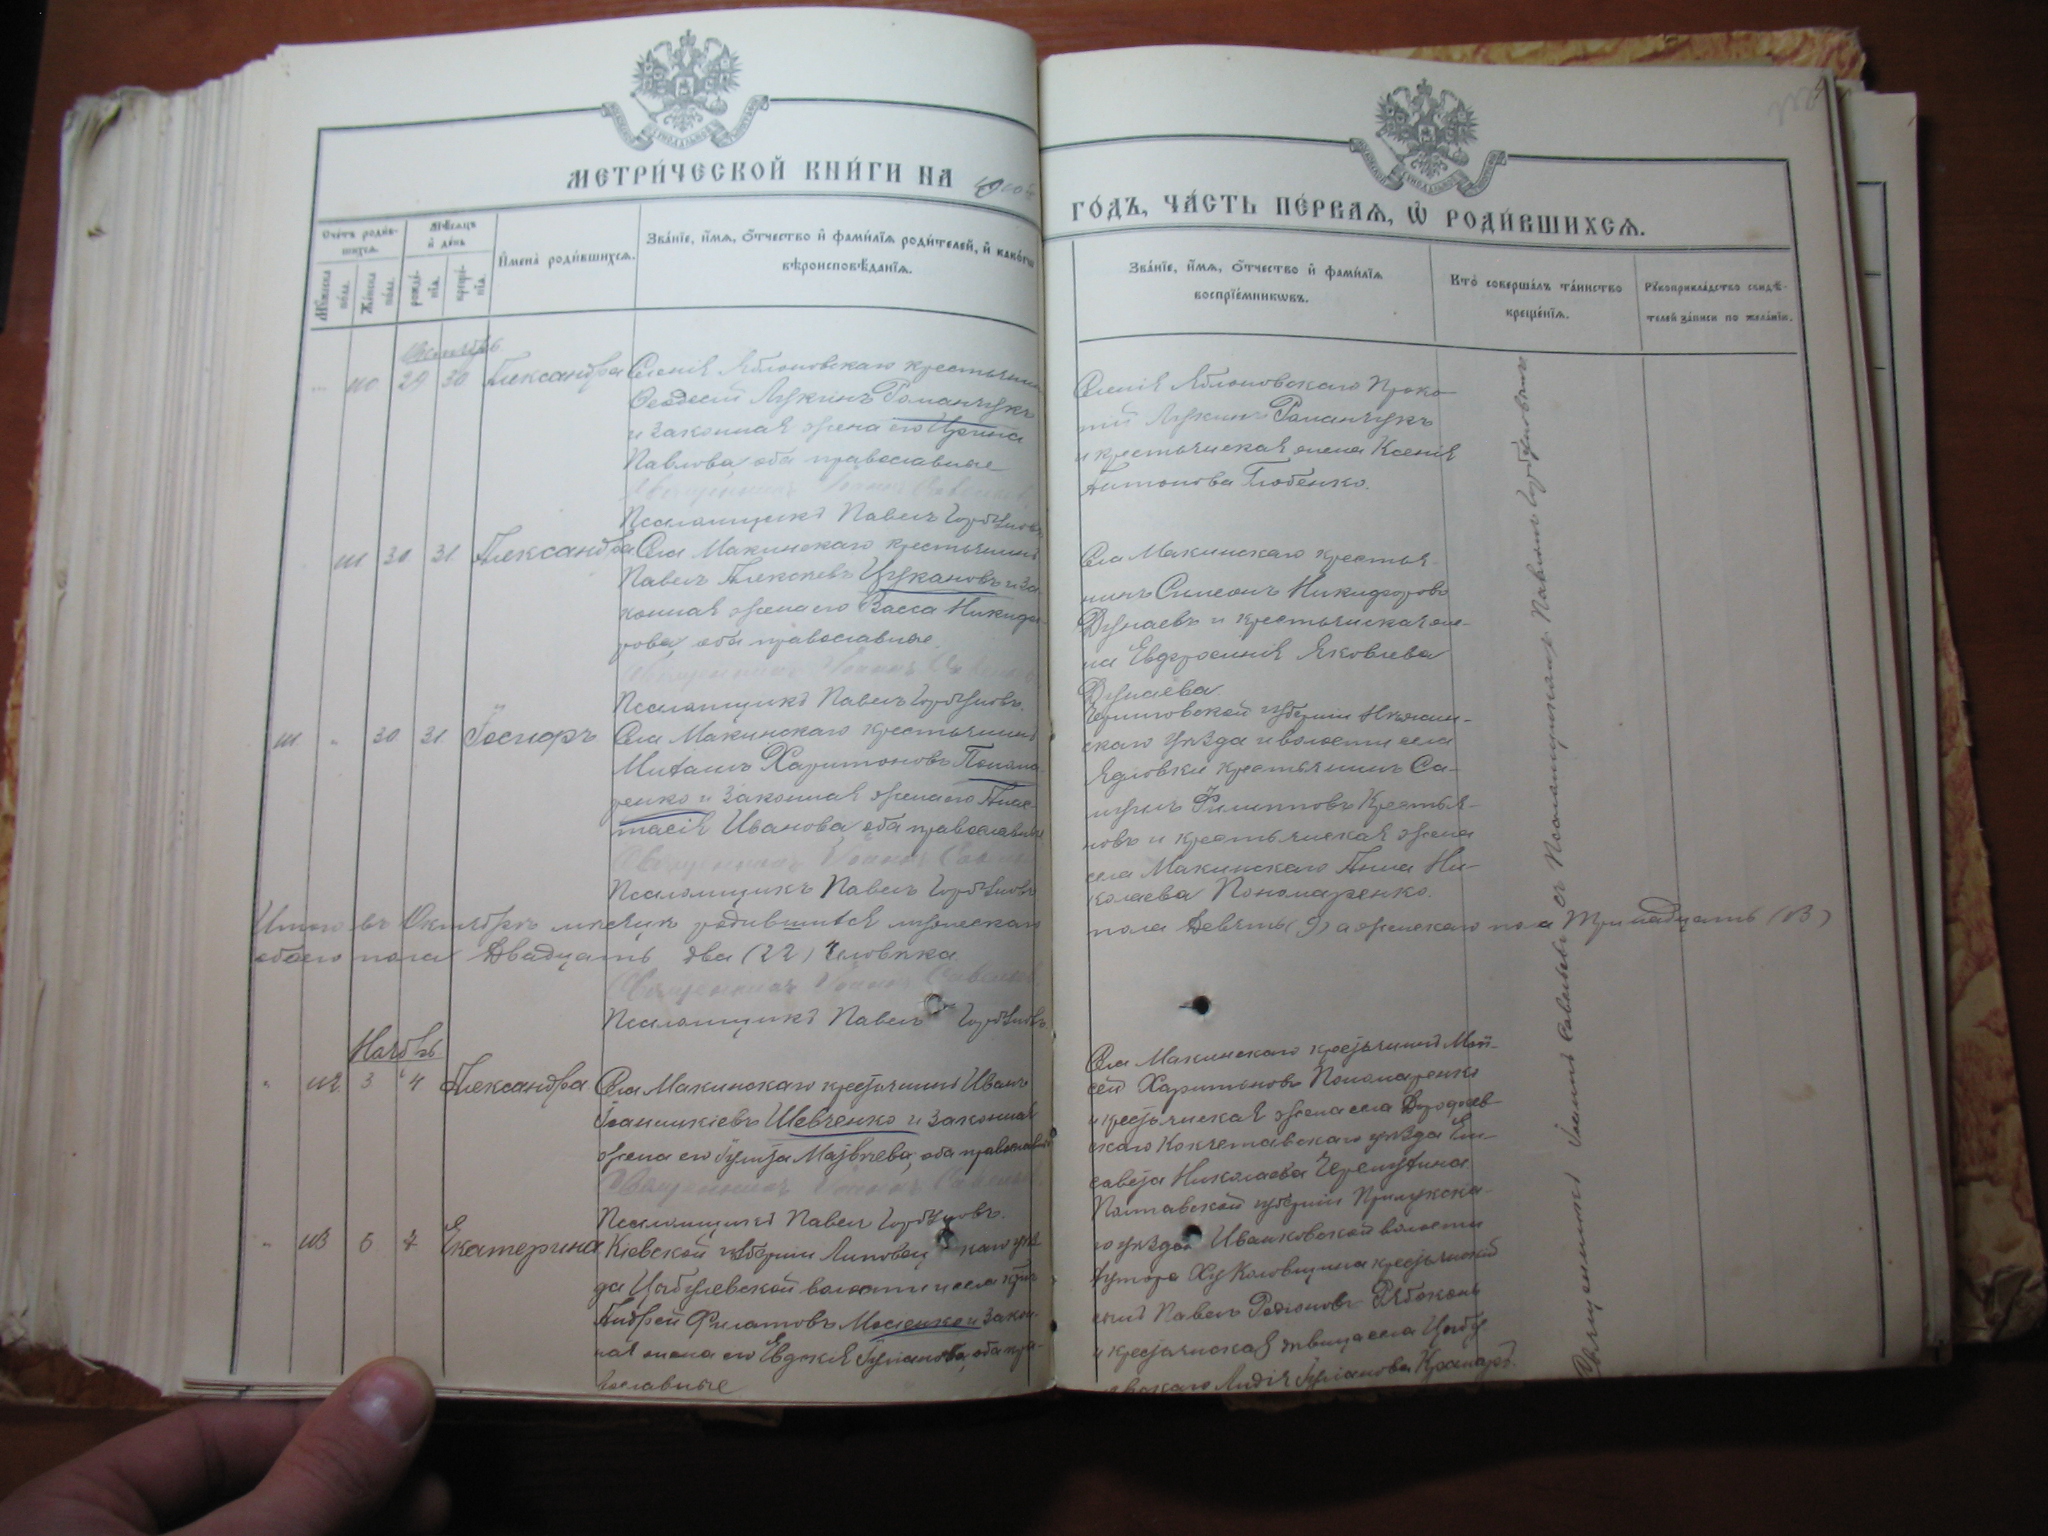 МЕТРИ́ЧЕСКОЙ КНИ́ГИ НА
ГО́ДЪ, ЧА́СТЬ ПЕ́РВАѦ, Ѡ РОДИ́ВШИХСѦ.
Сче́тъ роди́в-
шихсѧ.
Мꙋ́жеска по́ла.
Же́нска по́ла.
Мѣ́сѧцъ и де́нь
рожде́-
нїѧ.
креще́-
нїѧ.
Имена̀ роди́вшихсѧ.
Зва́нїе, и́мѧ, о́тчество и фами́лїѧ роди́телей, и како́гѡ
вѣроисповѣ́данїѧ.
Зва́нїе, и́мѧ, о́тчество и фами́лїѧ
воспрїе́мникѡвъ.
Кто̀ соверша́лъ та́инство
креще́нїѧ.
Рꙋкоприкла́дство свидѣ́-
телей за́писи по жела́нїю.
29 30 Александра
Селенія Яблоновскаго крестьянинъ
Ѳеодосій Лукинъ Романчукъ
и законная жена его Ирина
Павлова, оба православные
Священникъ Іоаннъ
Псаломщикъ Павелъ Горбуновъ
Селенія Яблоновскаго Проко-
пій Лукинъ Романчукъ
и крестьянская жена Ксенія
Антонова Глобенко.
30 31 Александра
Села Макинскаго крестьянинъ
Павелъ Алексѣевъ Цукановъ и за-
конная жена его Васса Никифо-
рова, оба православные.
Священникъ Іоаннъ
Псаломщикъ Павелъ Горбуновъ.
Села Макинскаго крестья-
нинъ Симеонъ Никифоровъ
Дунаевъ и крестьянская же-
на Евфросинія Яковлева
Дунаева.
30 31
Села Макинскаго крестьянинъ
Михаилъ Харитоновъ Понома-
ренко и законная жена его Анас-
тасія Иванова, оба православные
Священникъ Іоаннъ
Псаломщикъ Павелъ Горбуновъ
Черниговской губерніи Нѣжин-
скаго уѣзда и волости села
крестьянинъ Са-
муилъ Филипповъ Крестья-
новъ и крестьянская жена
села Макинскаго Анна Ни-
колаева Пономаренко.
Итого въ Октябрѣ мѣсяцѣ родившихся мужескаго
пола Девять (9) а женскаго пола Тринадцать (13)
обоего пола Двадцать два (22) человѣка.
Священникъ Іоаннъ
Псаломщикъ Павелъ Горбуновъ
Ноябрь
3 4 Александра
Села Макинскаго крестьянинъ Иванъ
Іоанникіевъ Шевченко и законная
жена его Матвѣева, оба православные
Священникъ Іоаннъ
Псаломщикъ Павелъ Горбуновъ.
Села Макинскаго крестьянинъ Мои-
сей Харитоновъ Пономаренко
и крестьянская жена села Дородѣев-
скаго Кокчетавскаго уѣзда Ели-
савета Николаева Черепухина
6 7 Екатерина
Кіевской губерніи Липовецкаго уѣз-
да Цыбулевской волости и села кр-нъ
Андрей Филатовъ Мосienко и закон-
ная жена его Евдокія оба пра-
вославные
Полтавской губерніи Прилукска-
го уѣзда Иванковской волости
хутора крестьянскій
сынъ Павелъ Родіоновъ Рябоконь
и крестьянская дѣвица села Цыбу-
левскаго Лидія
Священникъ Іоаннъ съ Псаломщикомъ Павломъ Горбуновымъ